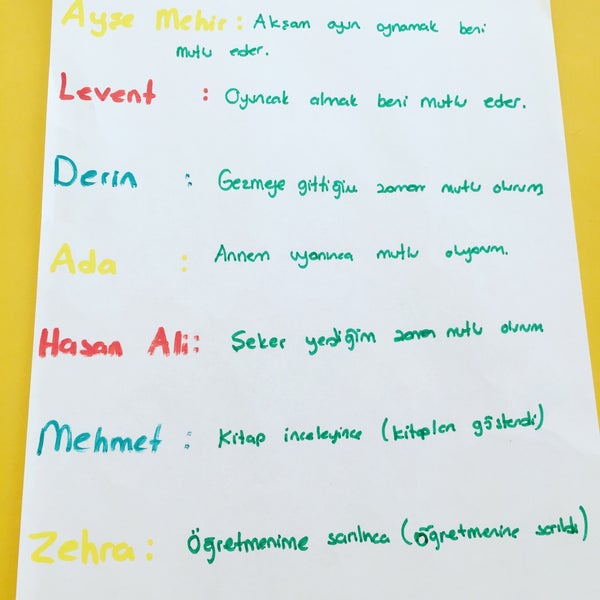 Ayşe Mehir: Akşam oyun oynamak beni
mutlu eder.
Levent : Oyuncak almak beni mutlu eder.
Derin : Gezmeye gittiğim zaman mutlu olurum
Ada : Annem uyanınca mutlu oluyorum.
Hasan Ali: Şeker yediğim zaman mutlu olurum
Mehmet : Kitap inceleyince (kitapları gösterdi)
Zehra: Öğretmenime sarılınca (öğretmenine sarıldı)